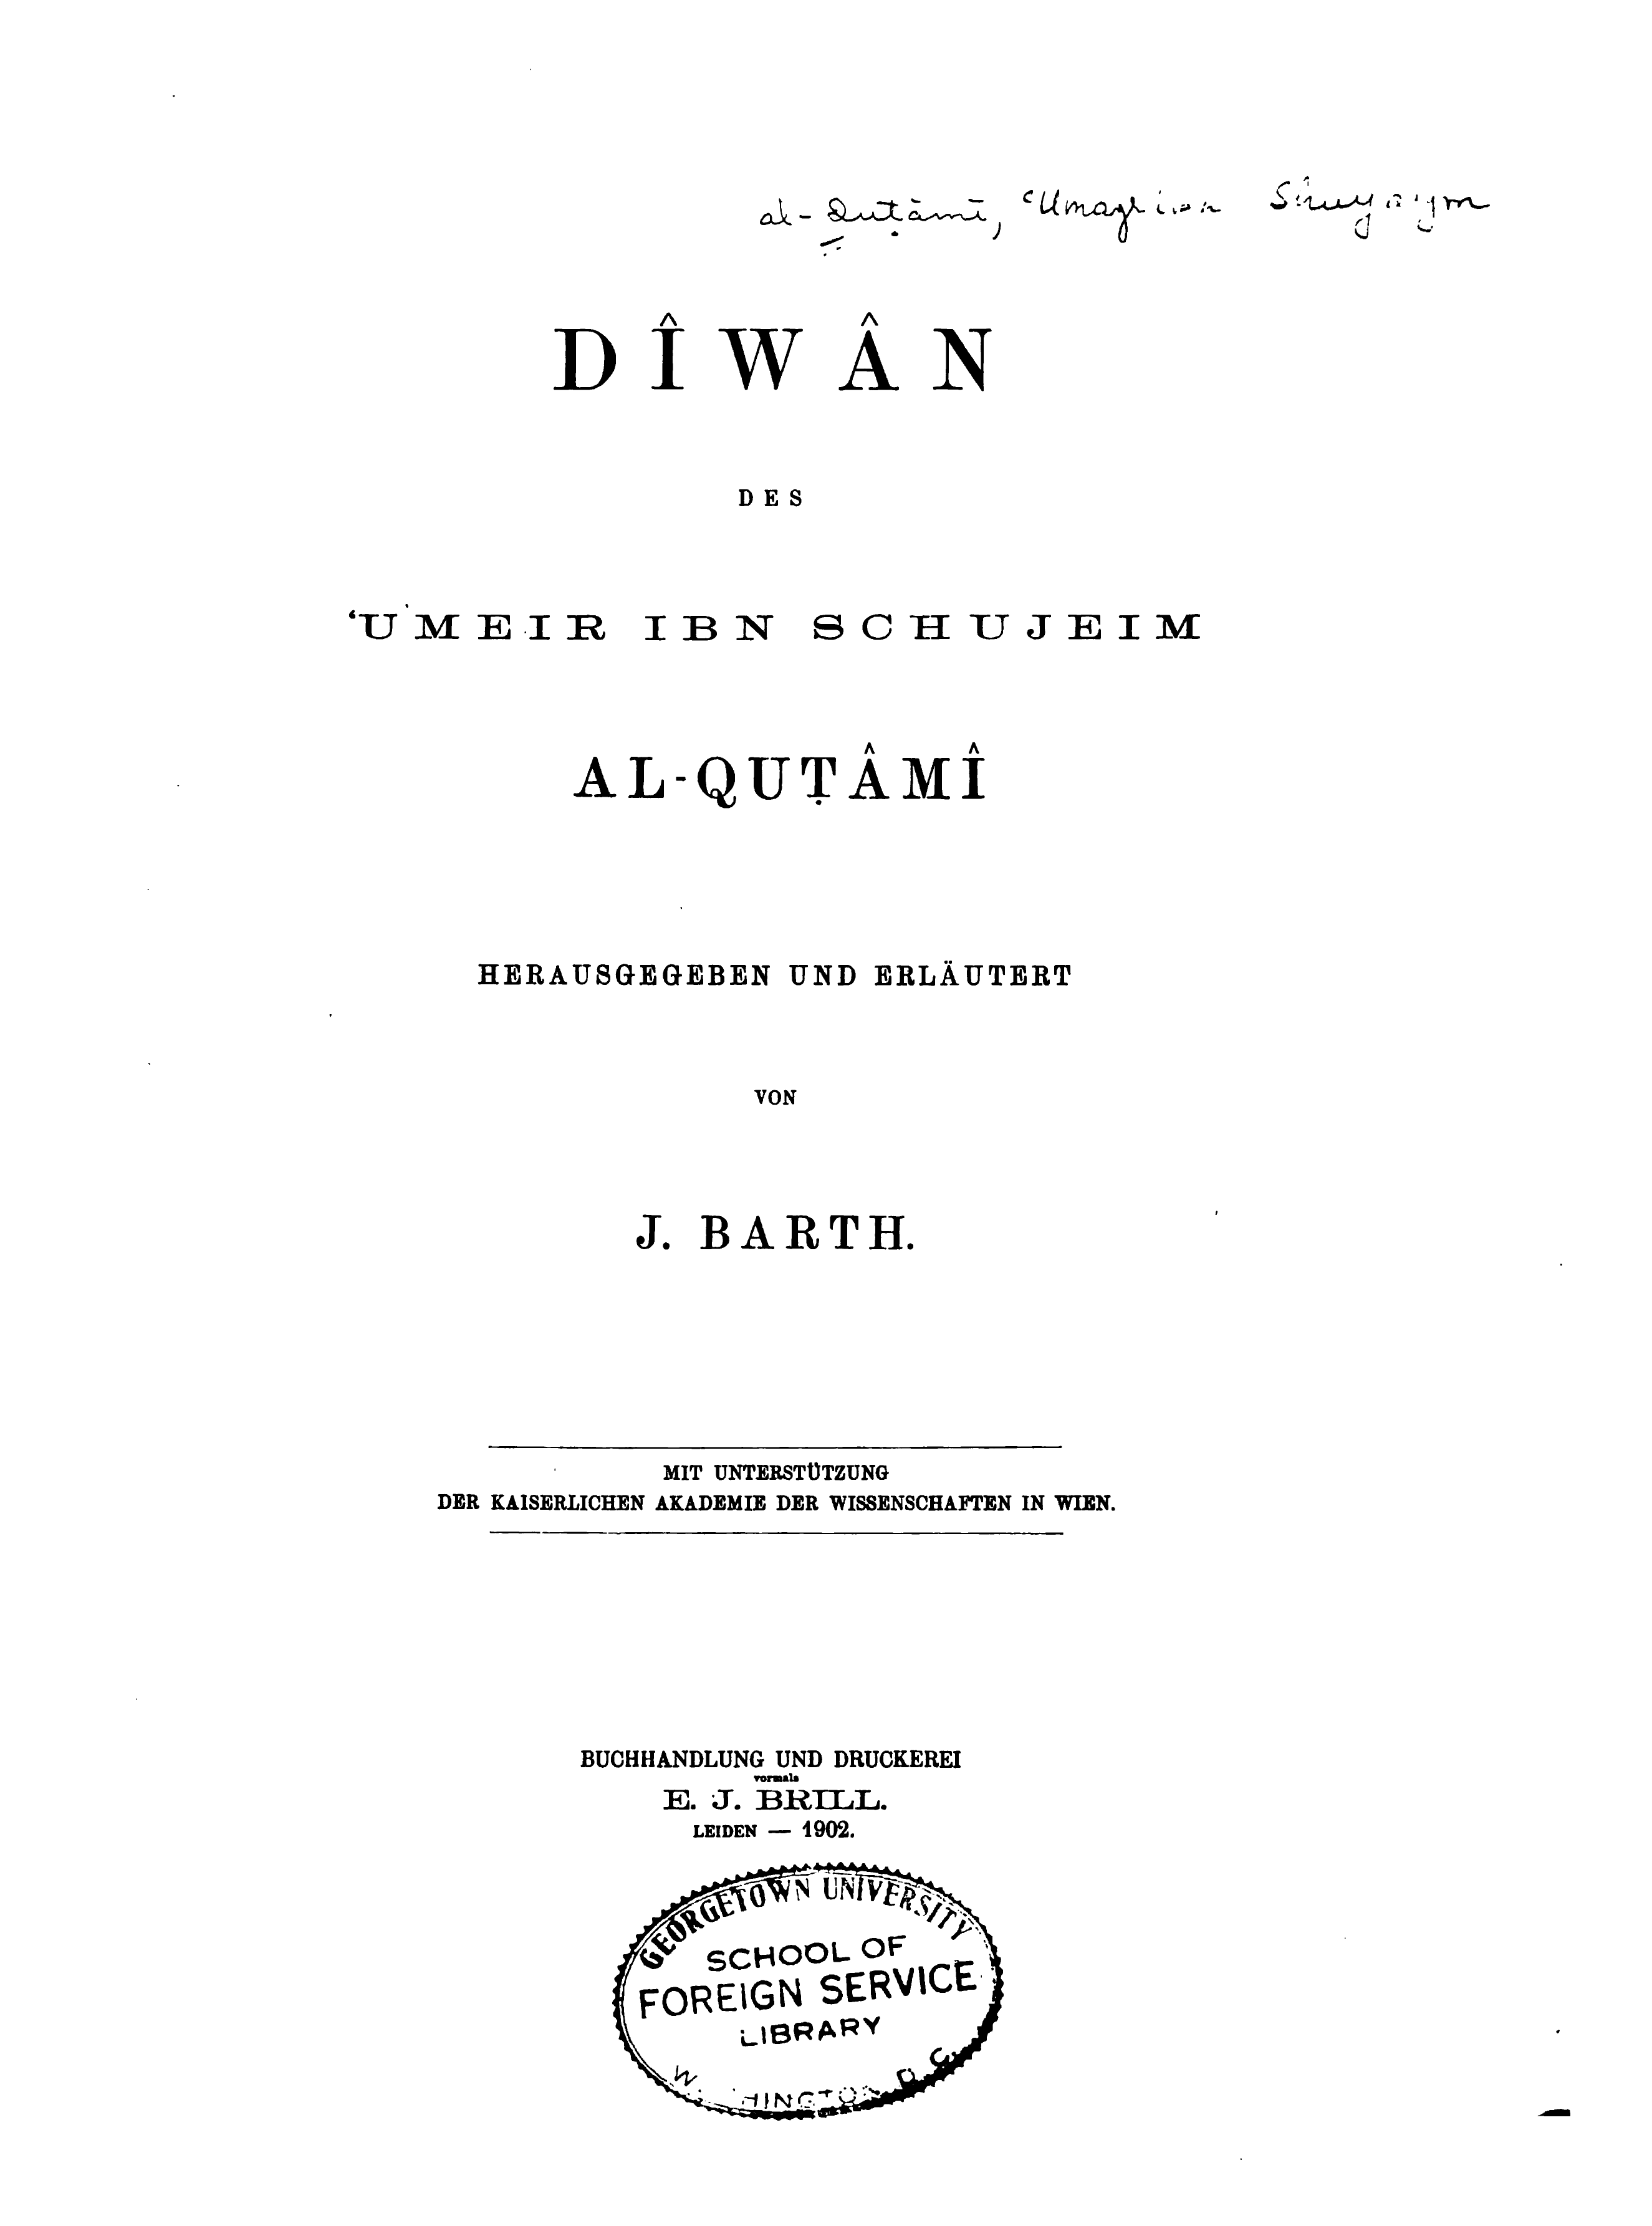 al-Quṭāmī, ʿUmayr ibn
DÎWÂN
DES
‘UMEIR IBN SCHUJEIM
AL-QUṬÂMÎ
HERAUSGEGEBEN UND ERLÄUTERT
VON
J. BARTH.
MIT UNTERSTÜTZUNG
DER KAISERLICHEN AKADEMIE DER WISSENSCHAFTEN IN WIEN.
BUCHHANDLUNG UND DRUCKEREI
vormals
E. J. BRILL.
LEIDEN — 1902.
GEORGETOWN UNIVERSITY
SCHOOL OF
FOREIGN SERVICE
LIBRARY
D. C.